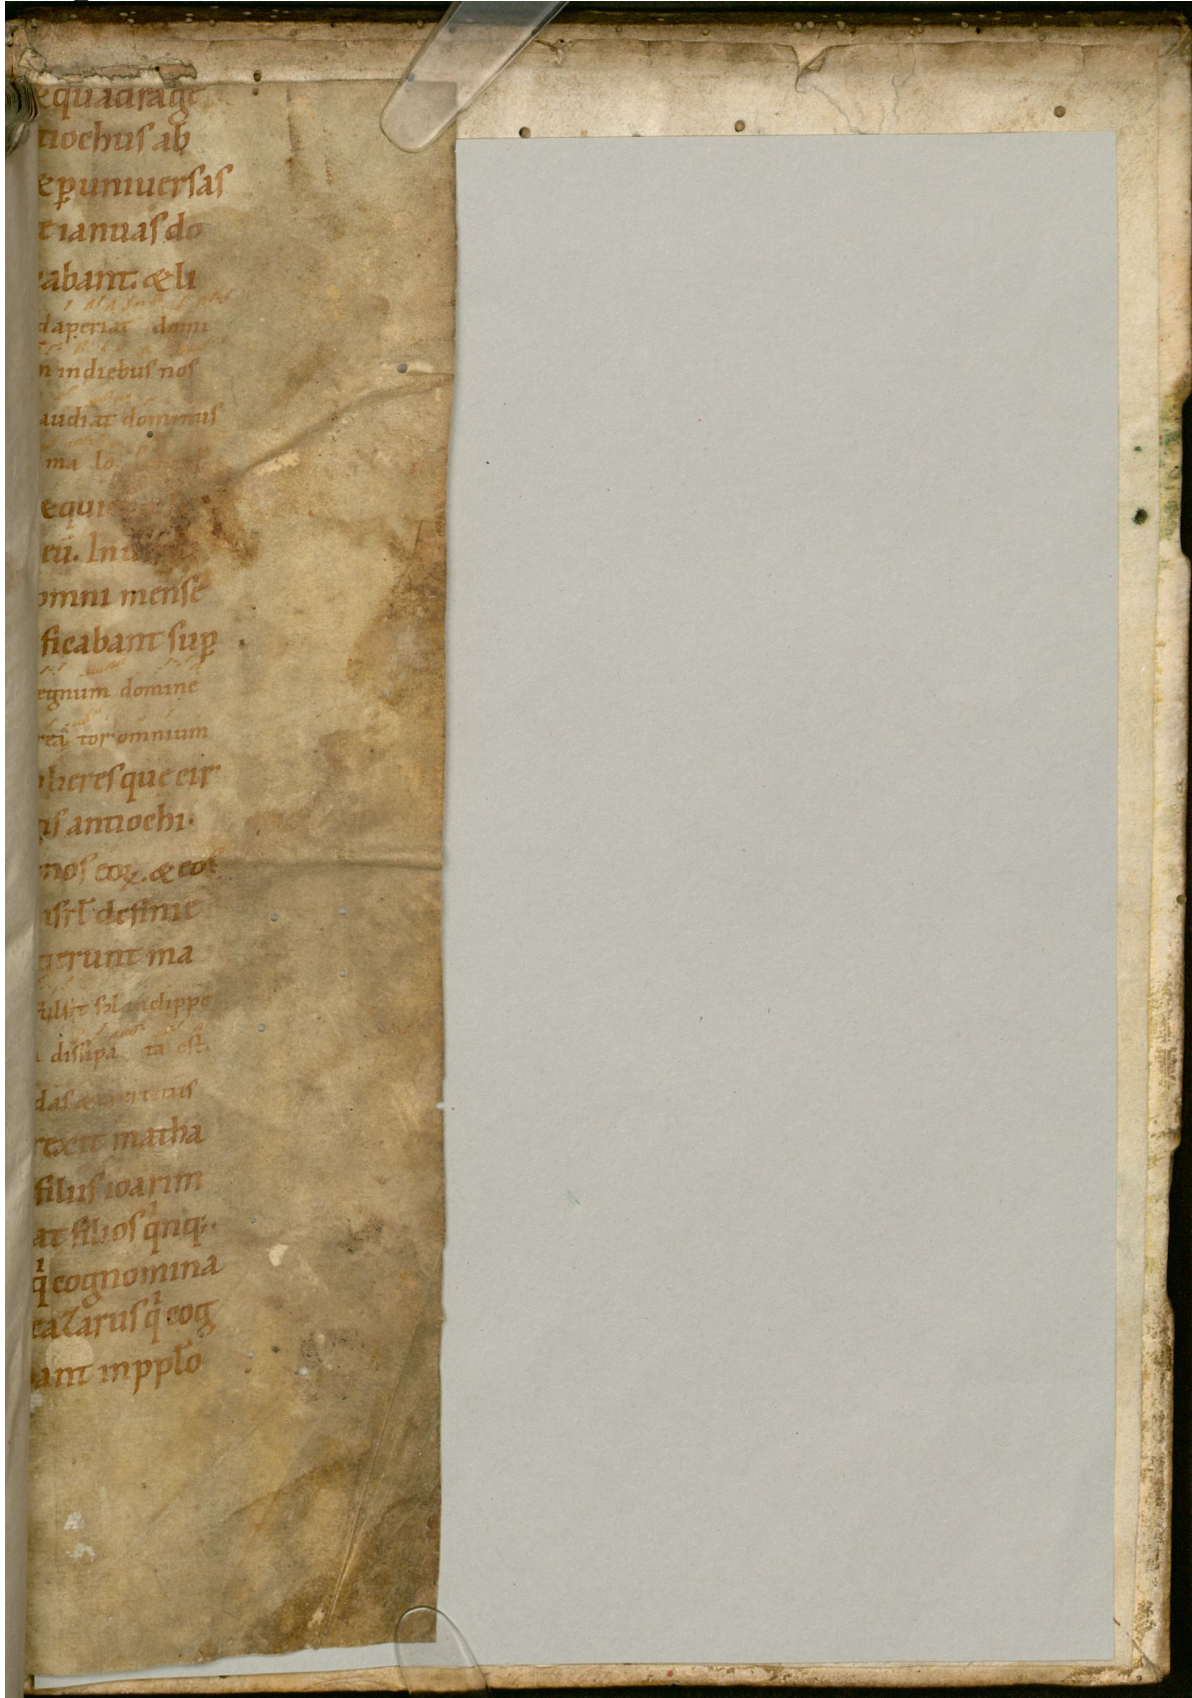 e quadrage
tiochus ab
e ꝑ uniuersas
t ianuas do
abant. & li
daperiat domi
n in diebus nos
audiat dominus
ma lo
equi
eū. In
omni mense
ficabant suꝑ
egnum domine
rea tor omnium
lieres que cir
gis antiochi.
nos eoꝝ. & eos
isrl̄ define
erunt ma
fulsit sol in clippe
dissipa ta est
das &
rexit matha
filius ioarim
at filios qͥnq;.
qͥ cognomina
eazarus qͥ cog
ant in ppl̄o